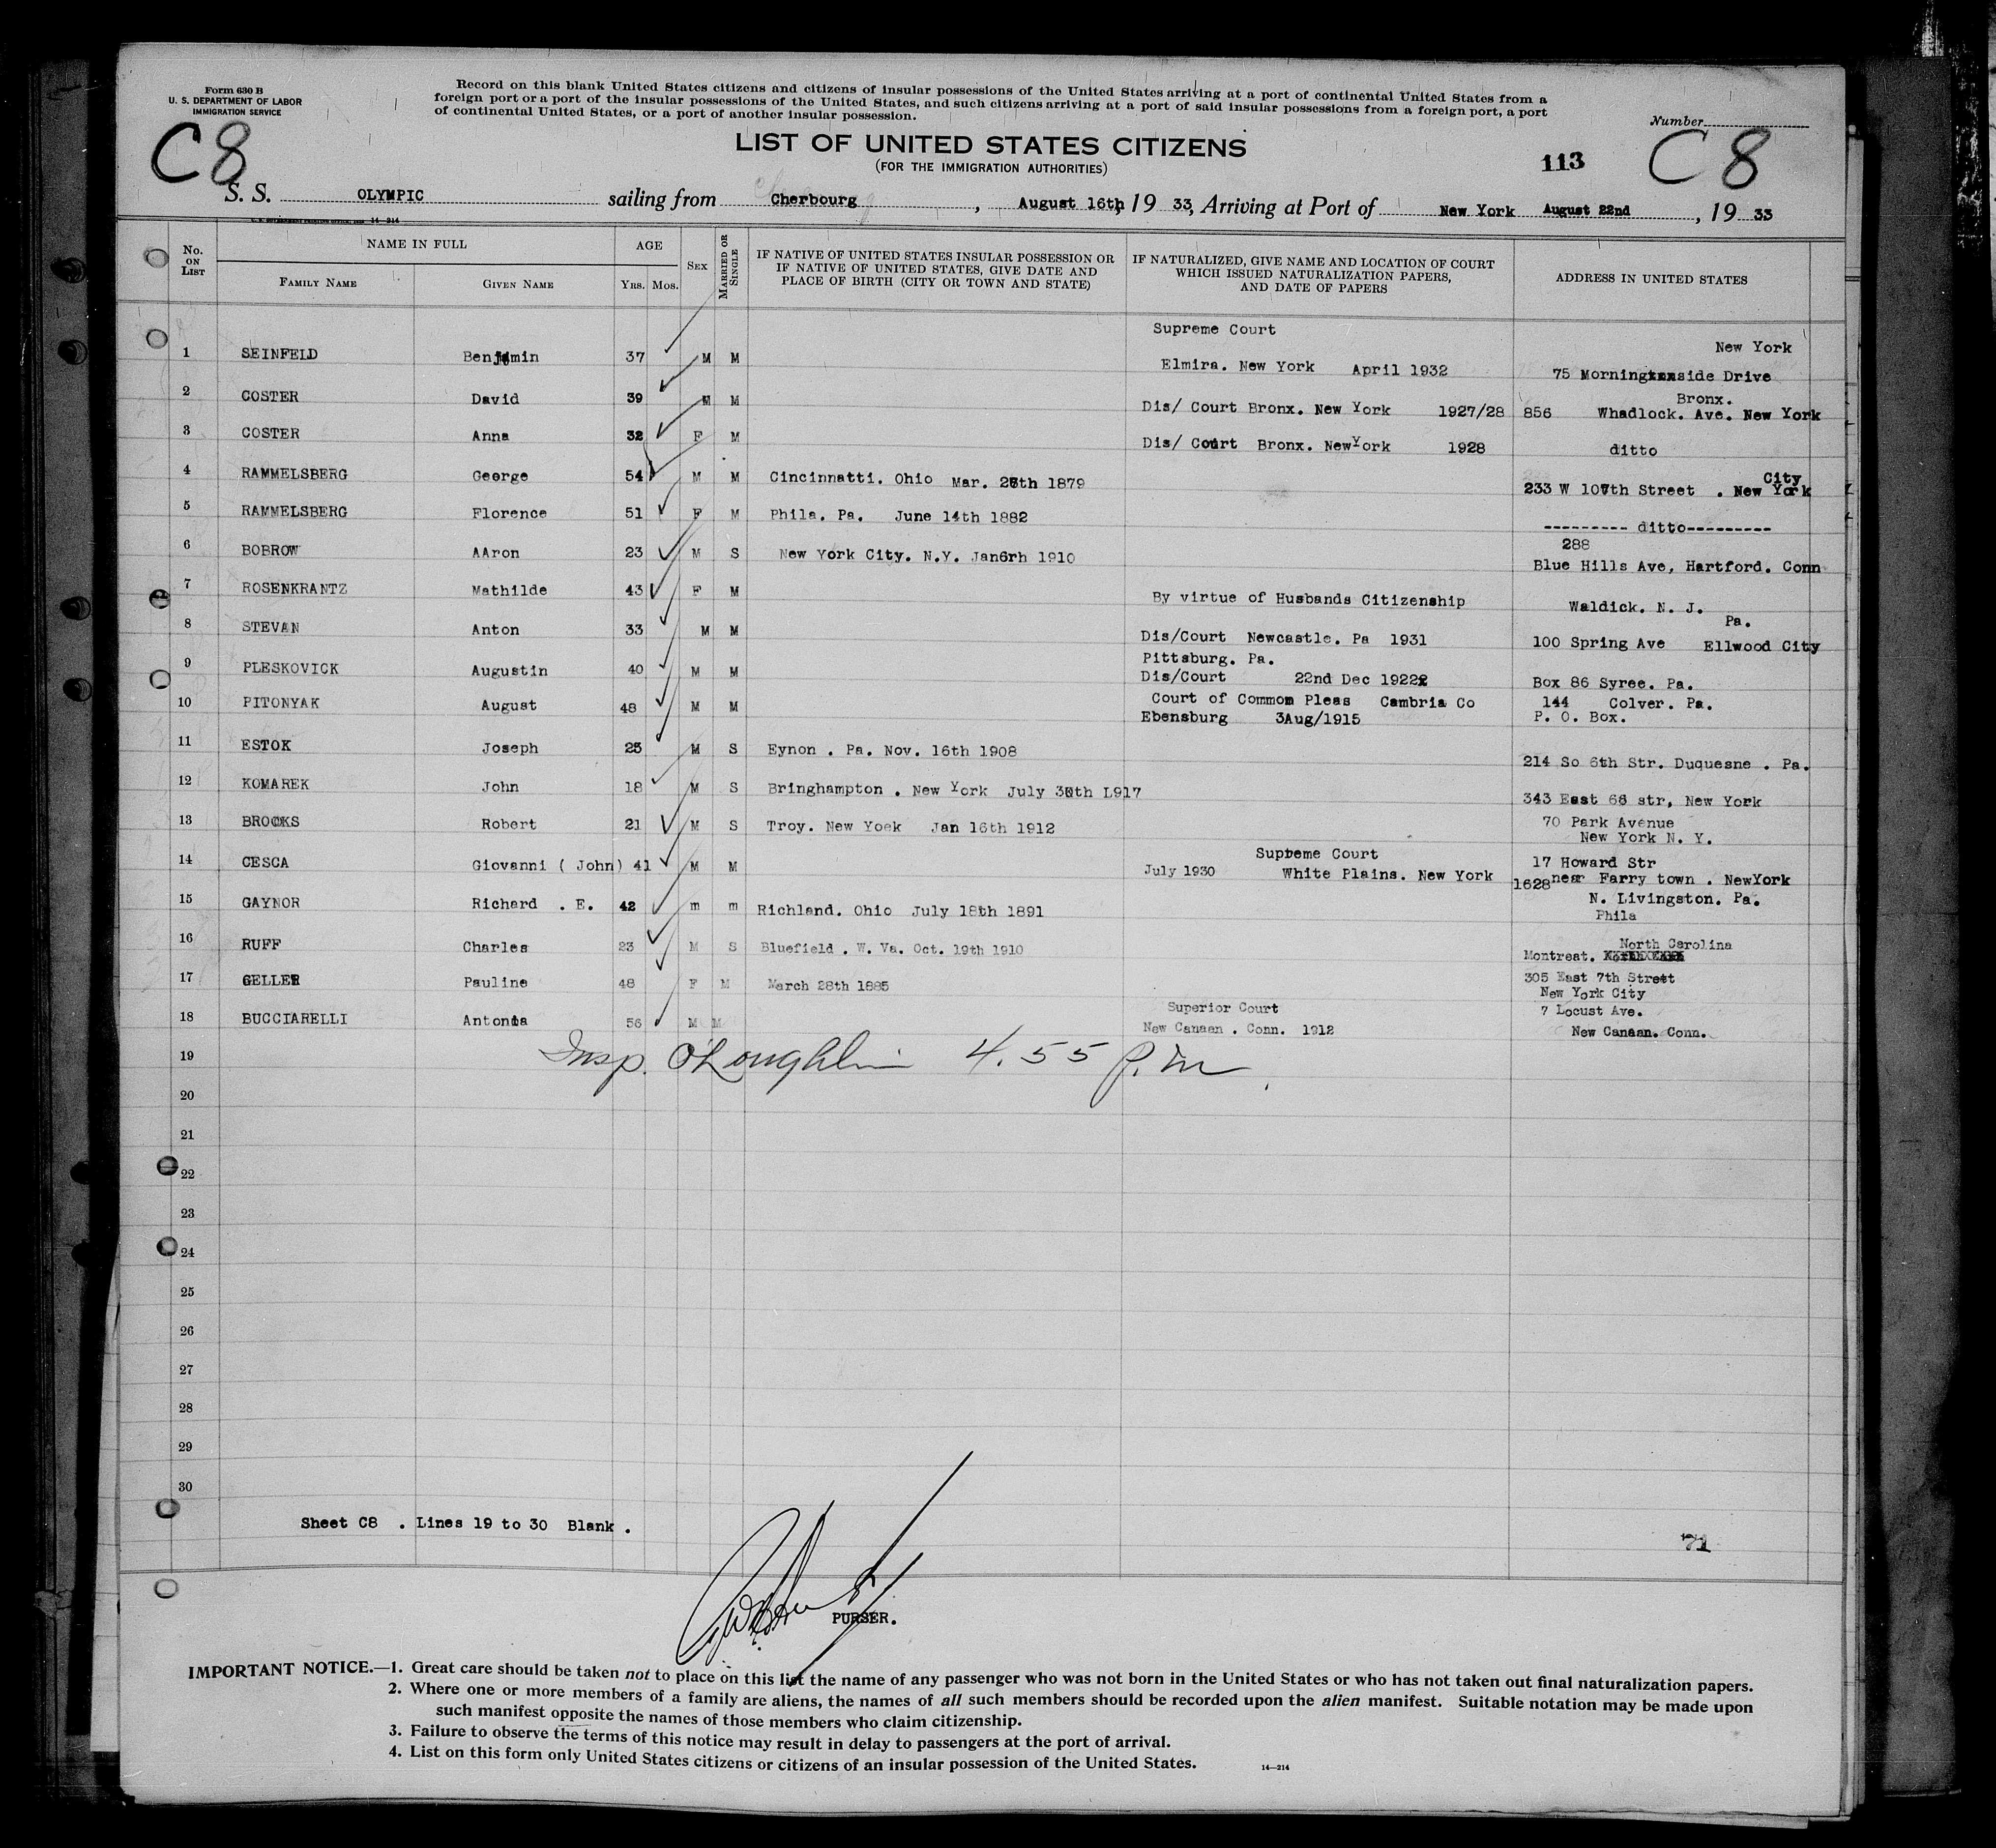 Form 630 B
U. S. DEPARTMENT OF LABOR
IMMIGRATION SERVICE
Record on this blank United States citizens and citizens of insular possessions of the United States arriving at a port of continental United States from a
foreign port or a port of the insular possessions of the United States, and such citizens arriving at a port of said insular possessions from a foreign port, a port
of continental United States, or a port of another insular possession.
Number
C8
LIST OF UNITED STATES CITIZENS
(FOR THE IMMIGRATION AUTHORITIES)
113
C8
S. S. OLYMPIC sailing from Cherbourg, August 16th, 19 33, Arriving at Port of New York August 22nd, 19 33
14-214
No. ON LIST
NAME IN FULL
FAMILY NAME
GIVEN NAME
AGE
YRS. MOS.
SEX
MARRIED OR SINGLE
IF NATIVE OF UNITED STATES INSULAR POSSESSION OR
IF NATIVE OF UNITED STATES, GIVE DATE AND
PLACE OF BIRTH (CITY OR TOWN AND STATE)
IF NATURALIZED, GIVE NAME AND LOCATION OF COURT
WHICH ISSUED NATURALIZATION PAPERS,
AND DATE OF PAPERS
ADDRESS IN UNITED STATES
Supreme Court
New York
1 SEINFELD Benjamin 37 M M Elmira. New York April 1932 75 Morningside Drive
Bronx.
2 COSTER David 39 M M Dis/ Court Bronx. New York 1927/28 856 Whadlock. Ave. New York
3 COSTER Anna 32 F M Dis/ Court Bronx. NewYork 1928 ditto
City
4 RAMMELSBERG George 54 M M Cincinnatti. Ohio Mar. th 1879 233 W 107th Street . New York
5 RAMMELSBERG Florence 51 F M Phila. Pa. June 14th 1882 --------- ditto---------
288
6 BOBROW AAron 23 M S New York City. N.Y. Jan6rh 1910 Blue Hills Ave, Hartford. Conn
7 ROSENKRANTZ Mathilde 43 F M By virtue of Husbands Citizenship Waldick. N. J.
Pa.
8 STEVAN Anton 33 M M Dis/Court Newcastle. Pa 1931 100 Spring Ave Ellwood City
Pittsburg. Pa.
9 PLESKOVICK Augustin 40 M M Dis/Court 22nd Dec 1922 Box 86 Syree. Pa.
10 PITONYAK August 48 M M Court of Common Pleas Cambria Co 144 Colver. Pa.
Ebensburg 3Aug/1915 P. O. Box.
11 ESTOK Joseph 25 M S Eynon . Pa. Nov. 16th 1908 214 So 6th Str. Duquesne . Pa.
12 KOMAREK John 18 M S Bringhampton . New York July 30th L917 343 East 66 str, New York
13 BROOKS Robert 21 M S Troy. New Yoek Jan 16th 1912 70 Park Avenue
New York N. Y.
Supreme Court
14 CESCA Giovanni ( John) 41 M M July 1930 White Plains. New York 17 Howard Str
near Farry town . NewYork
15 GAYNOR Richard . E. 42 m m Richland. Ohio July 18th 1891 1628 N. Livingston. Pa.
Phila
North Carolina
16 RUFF Charles 23 M S Bluefield . W. Va. Oct. 19th 1910 Montreat.
17 GELLER Pauline 48 F M March 28th 1885 305 East 7th Street
New York City
Superior Court
7 Locust Ave.
18 BUCCIARELLI Antonia 56 M M New Canaan . Conn. 1912 New Canaan. Conn.
19 Insp. O'Loughlin 4.55 p.m.
20
21
22
23
24
25
26
27
28
29
30
Sheet C8 . Lines 19 to 30 Blank .
71
PURSER.
IMPORTANT NOTICE.—1. Great care should be taken not to place on this list the name of any passenger who was not born in the United States or who has not taken out final naturalization papers.
2. Where one or more members of a family are aliens, the names of all such members should be recorded upon the alien manifest. Suitable notation may be made upon
such manifest opposite the names of those members who claim citizenship.
3. Failure to observe the terms of this notice may result in delay to passengers at the port of arrival.
4. List on this form only United States citizens or citizens of an insular possession of the United States.
14—214